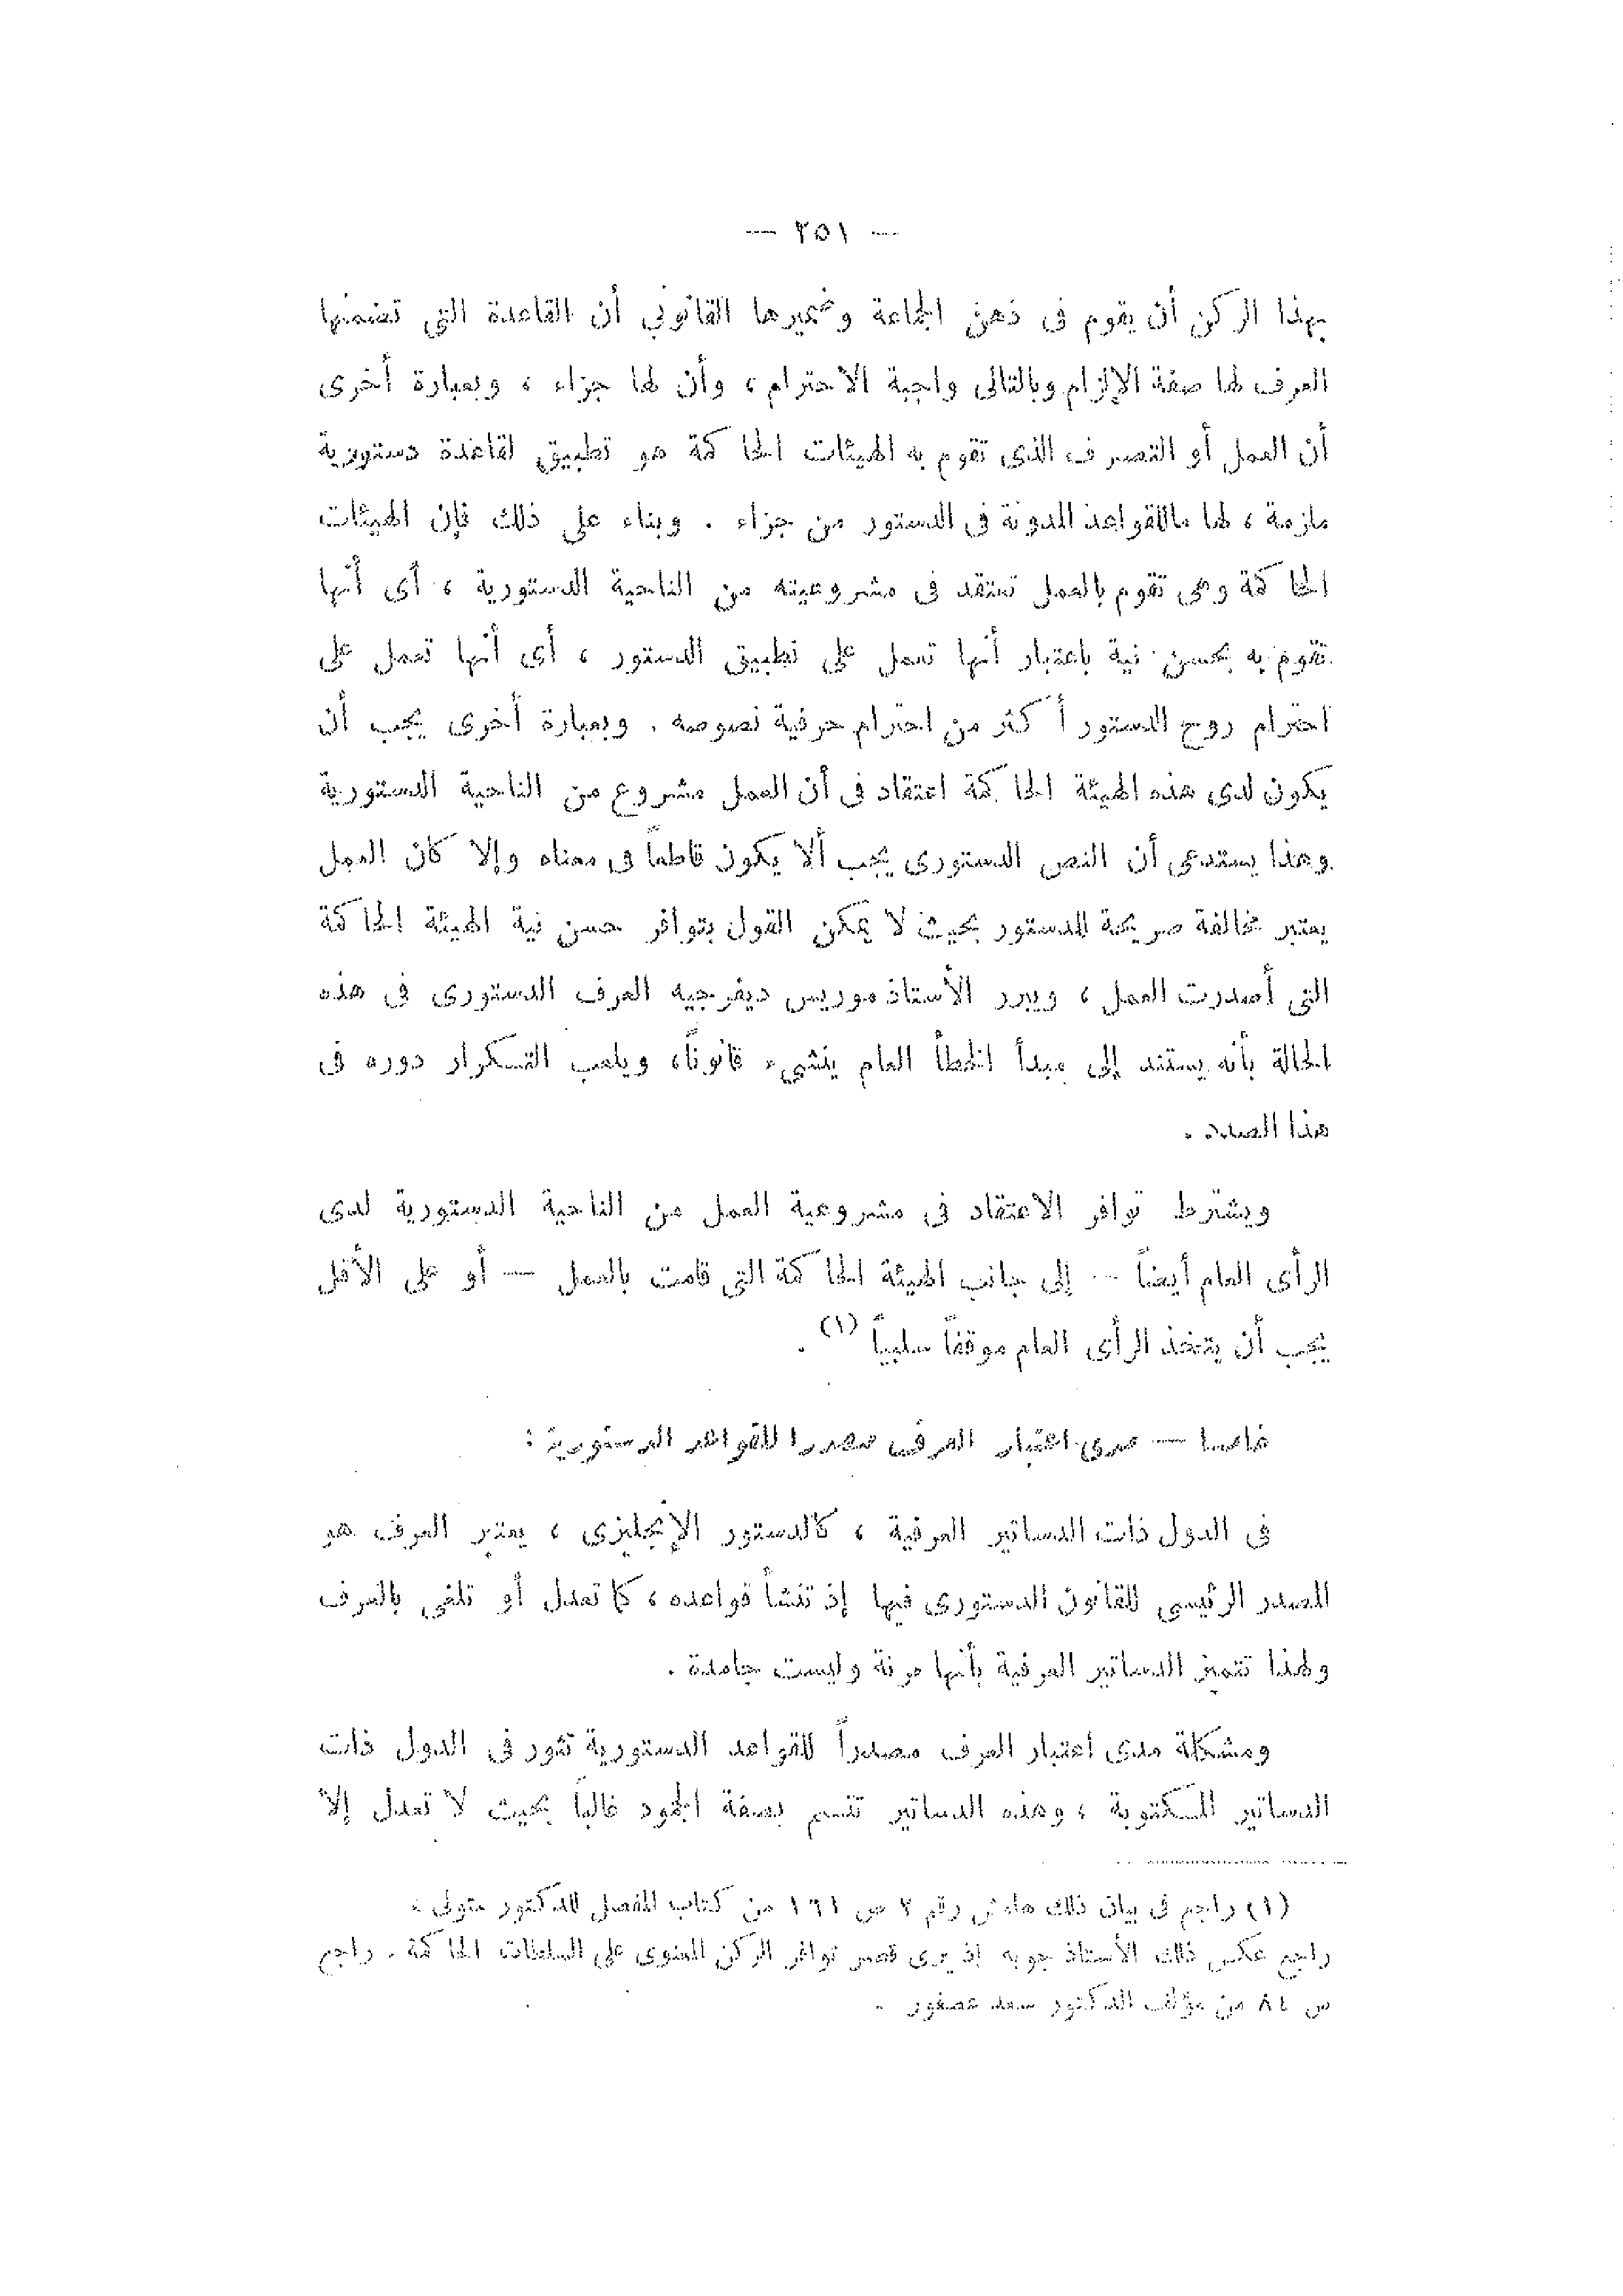 — ٢٥١ —
بهذا الركن أن يقوم فى ذهن الجماعة وضميرها القانونى أن القاعدة التى تضمنها
العرف لها صفة الإلزام وبالتالى واجبة الاحترام ، وأن لها جزاء ، وبعبارة أخرى
أن العمل أو التصرف الذى تقوم به الهيئات الحاكمة هو تطبيق لقاعدة دستورية
ملزمة ، لها ما للقواعد المدونة فى الدستور من جزاء . وبناء على ذلك فإن الهيئات
الحاكمة وهى تقوم بالعمل تعتقد فى مشروعيته من الناحية الدستورية ، أى أنها
تقوم به بحسن نية باعتبار أنها تعمل على تطبيق الدستور ، أى أنها تعمل على
احترام روح الدستور أكثر من احترام حرفية نصوصه . وبعبارة أخرى يجب أن
يكون لدى هذه الهيئة الحاكمة اعتقاد فى أن العمل مشروع من الناحية الدستورية
وهذا يستدعى أن النص الدستورى يجب ألا يكون قاطعاً فى معناه وإلا كان العمل
يعتبر مخالفة صريحة للدستور بحيث لا يمكن القول بتوافر حسن نية الهيئة الحاكمة
التى أصدرت العمل ، ويبرر الأستاذ موريس ديفرجيه العرف الدستورى فى هذه
الحالة بأنه يستند إلى مبدأ الخطأ العام ينشىء قانوناً ، ويلعب التكرار دوره فى
هذا الصدد .
ويشترط توافر الاعتقاد فى مشروعية العمل من الناحية الدستورية لدى
الرأى العام أيضاً — إلى جانب الهيئة الحاكمة التى قامت بالعمل — أو على الأقل
يجب أن يتخذ الرأى العام موقفاً سلبياً (١) .
خامسا — مدى اعتبار العرف مصدرا للقواعد الدستورية :
فى الدول ذات الدساتير العرفية ، كالدستور الإنجليزى ، يعتبر العرف هو
المصدر الرئيسى للقانون الدستورى فيها إذ تنشأ قواعده ، كما تعدل أو تلغى بالعرف
ولهذا تتميز الدساتير العرفية بأنها مرنة وليست جامدة .
ومشكلة مدى اعتبار العرف مصدراً للقواعد الدستورية تثور فى الدول ذات
الدساتير المكتوبة ، وهذه الدساتير تتسم بصفة الجمود غالباً بحيث لا تعدل إلا
(١) راجع فى بيان ذلك هامش رقم ٢ ص ١٦١ من كتاب المفصل للدكتور متولى .
راجع عكس ذلك الأستاذ جوبه إذ يرى قصر توافر الركن المعنوى على السلطات الحاكمة . راجع
ص ٨٤ من مؤلف الدكتور سعد عصفور .